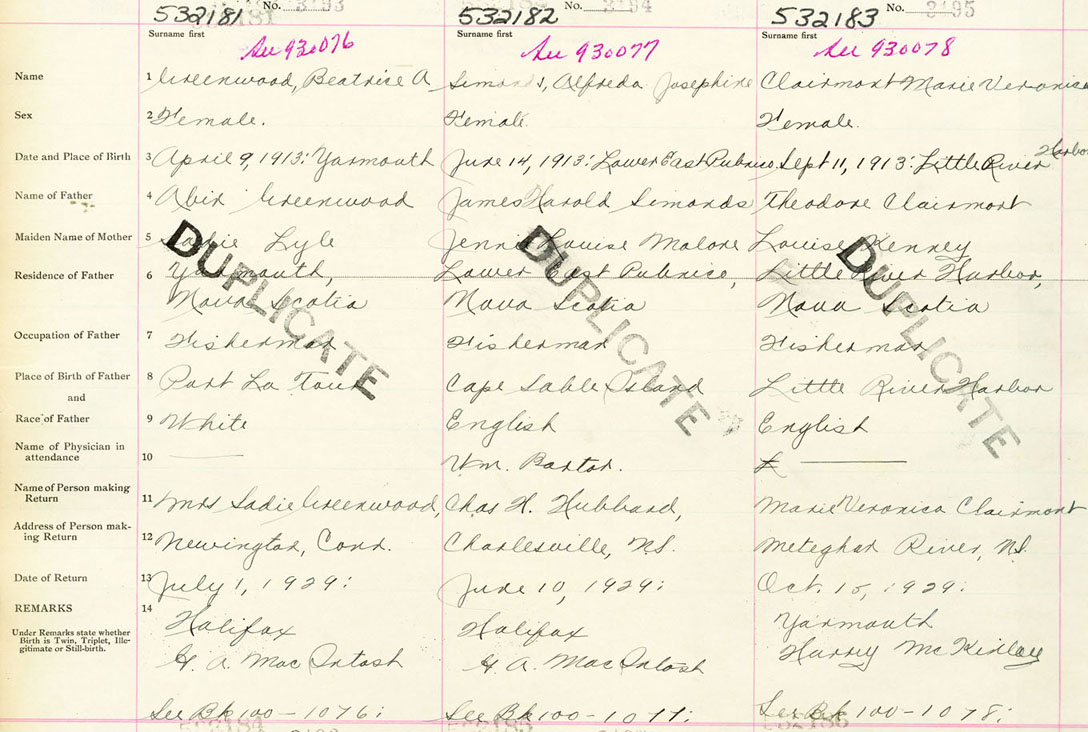 532181 No. 3193 532182 No. 3194 532183 No. 3195
Surname first Surname first Surname first
See 930076 See 930077 See 930078
Name 1 Greenwood, Beatrice A Simonds, Alfreda Josephine Clairmont Marie Veronica
Sex 2 Female. Female. Female.
Date and Place of Birth 3 April 9, 1913: Yarmouth June 14, 1913: Lower East Pubnico, Sept 11, 1913: Little River Harbor
Name of Father 4 Greenwood James Harold Simonds Theodore Clairmont
Maiden Name of Mother 5 Sadie Lyle Jennie Louise Malone Louise Kenney
Residence of Father 6 Yarmouth, Lower East Pubnico, Little River Harbor,
Nova Scotia Nova Scotia Nova Scotia
DUPLICATE DUPLICATE DUPLICATE
Occupation of Father 7 Fisherman Fisherman Fisherman
Place of Birth of Father 8 Port La Tour Cape Sable Island Little River Harbor
and
Race of Father 9 White English English
Name of Physician in
attendance 10 Wm.
Name of Person making
Return 11 Mrs Sadie Greenwood, Chas H. Hubbard, Marie Veronica Clairmont
Address of Person mak-
ing Return 12 Newington, Conn. Charlesville, N.S. Meteghan River, N.S.
Date of Return 13 July 1, 1929: June 10, 1929: Oct. 15, 1929:
REMARKS 14 Halifax Halifax Yarmouth
Under Remarks state whether
Birth is Twin, Triplet, Ille-
gitimate or Still-birth.
H. A. MacIntosh H. A. MacIntosh Harry McKinley
See Bk 100-1076: See Bk 100-1077: See Bk 100-1078: